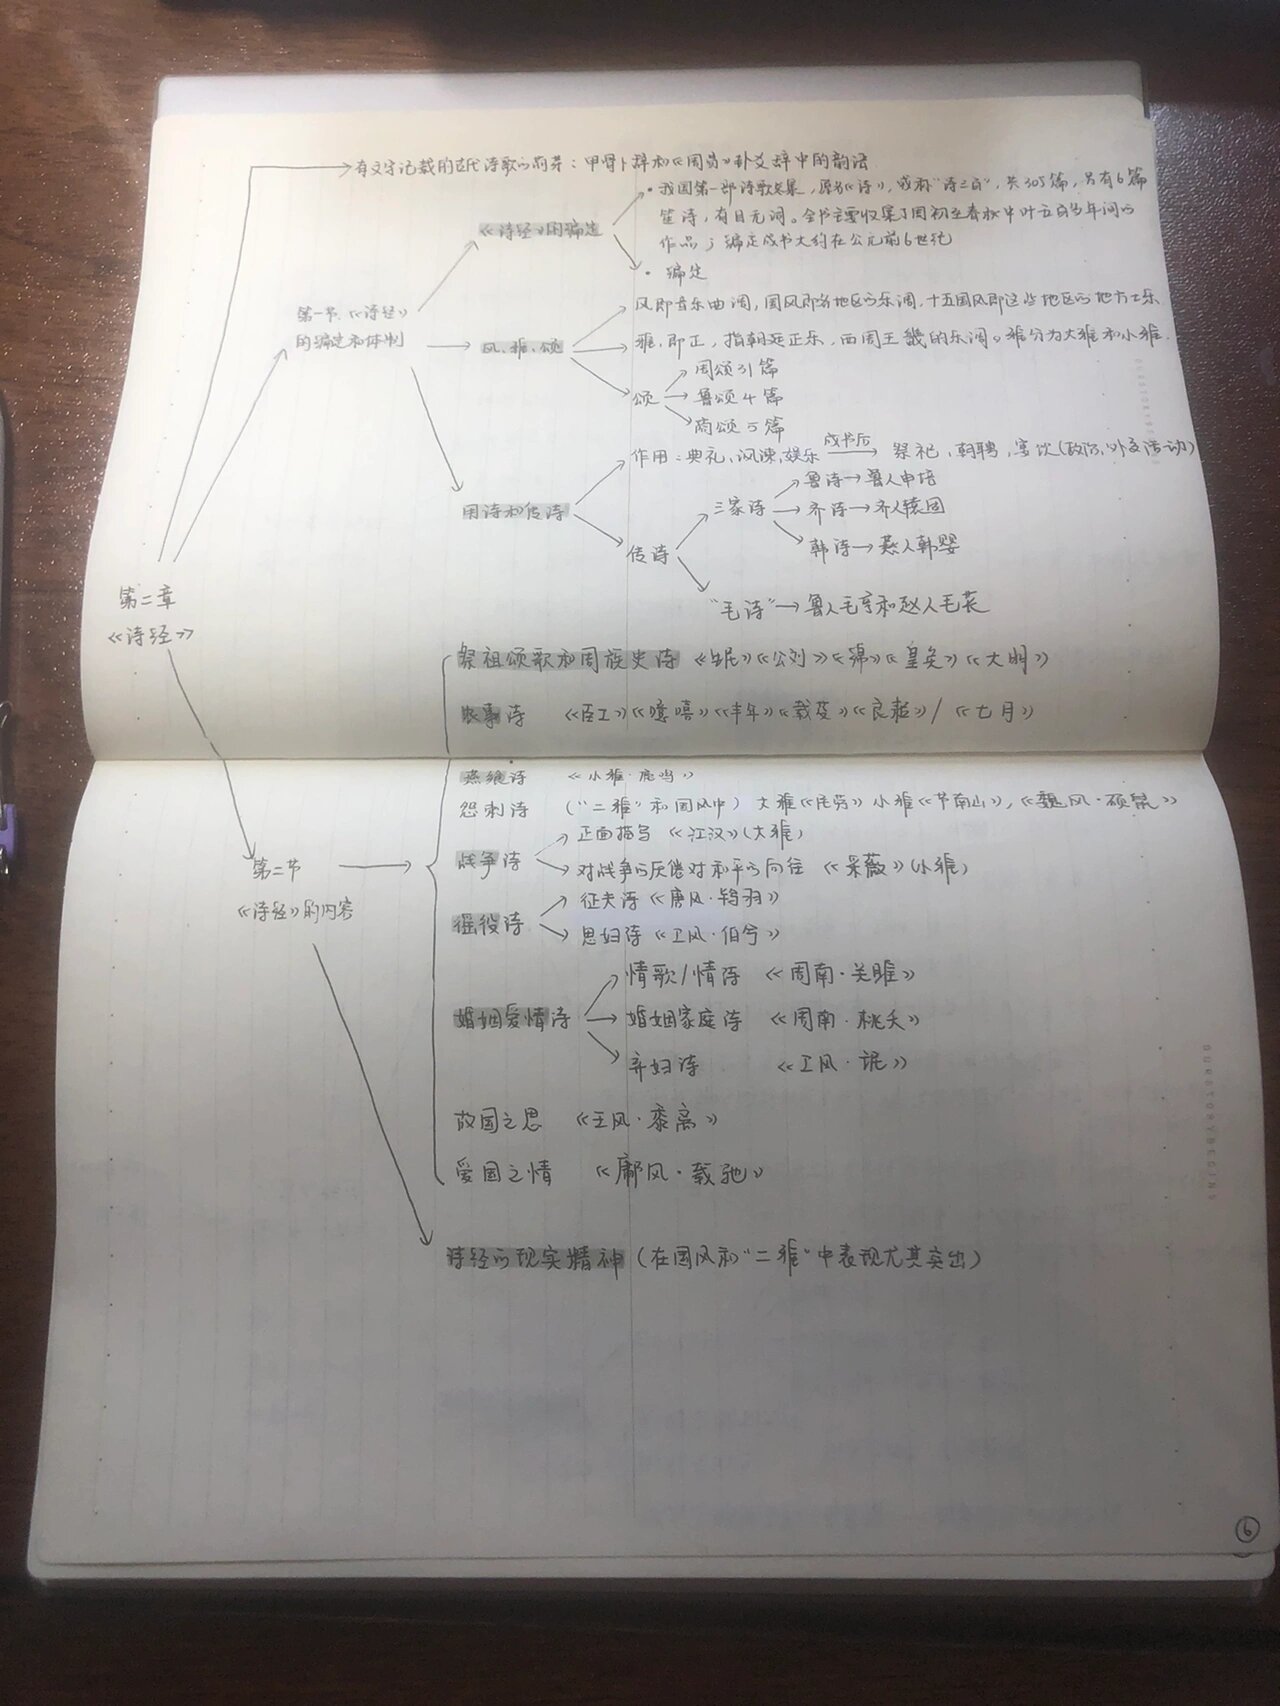 有文字记载的古代诗歌的萌芽：甲骨卜辞和《周易》卦爻辞中的韵语
·我国第一部诗歌总集，原名《诗》，或称"诗三百"，共305篇，另有6篇
笙诗，有目无词。全书主要收集了周初至春秋中叶五百多年间的
作品；编定成书大约在公元前6世纪
《诗经》的编定
·编定
第一节《诗经》
的编定和体制
风即音乐曲调，国风即各地区的乐调，十五国风即这些地区的地方土乐
风、雅、颂
雅，即正，指朝廷正乐，西周王畿的乐调。雅分为大雅和小雅.
颂
周颂31篇
鲁颂4篇
商颂5篇
作用：典礼、讽谏、娱乐 成书后 祭祀、朝聘、宴饮(政治、外交活动)
用诗和传诗
三家诗
鲁诗→鲁人申培
齐诗→齐人辕固
韩诗→燕人韩婴
传诗
"毛诗"→鲁人毛亨和赵人毛苌
第二章
《诗经》
祭祖颂歌和周族史诗 《生民》《公刘》《緜》《皇矣》《大明》
农事诗 《臣工》《噫嘻》《丰年》《载芟》《良耜》/《七月》
燕飨诗 《小雅·鹿鸣》
怨刺诗 ("二雅"和国风中) 大雅《民劳》小雅《节南山》,《魏风·硕鼠》
战争诗
正面描写 《江汉》(大雅)
对战争的厌倦对和平的向往 《采薇》(小雅)
第二节
《诗经》的内容
徭役诗
征夫诗《唐风·鸨羽》
思妇诗《卫风·伯兮》
婚姻爱情诗
情歌/情诗 《周南·关雎》
婚姻家庭诗 《周南·桃夭》
弃妇诗 《卫风·氓》
故国之思 《王风·黍离》
爱国之情 《鄘风·载驰》
诗经的现实精神 (在国风和"二雅"中表现尤其突出)
6